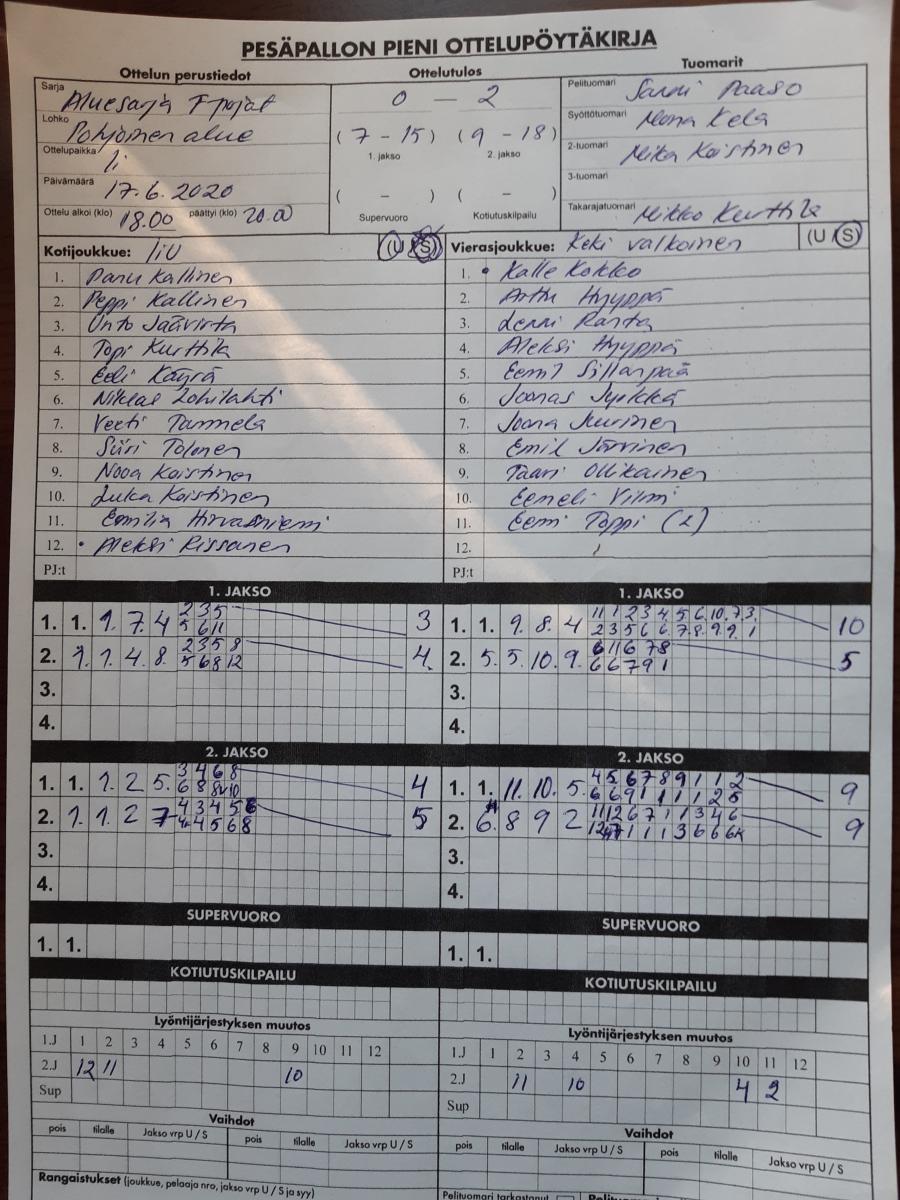 PESÄPALLON PIENI OTTELUPÖYTÄKIRJA
Ottelun perustiedot
Sarja Aluesarja F pojat
Lohko Pohjoinen alue
Ottelupaikka Ii
Päivämäärä 17.6.2020
Ottelu alkoi (klo) 18.00 päättyi (klo) 20.00
Ottelutulos
0 - 2
(7 - 15) (9 - 18)
1. jakso 2. jakso
( - ) ( - )
Supervuoro Kotiutuskilpailu
Tuomarit
Pelituomari Sanni Paaso
Syöttötuomari Mona Kela
2-tuomari Mika Koistinen
3-tuomari
Takarajatuomari Mikko Kurttila
Kotijoukkue: IiU (U S)
1. Panu Kallinen
2. Peppi Kallinen
3. Unto Jaavirta
4. Topi Kurttila
5. Eeli Käyrä
6. Niklas
7. Veeti Tammela
8. Siiri Tolonen
9. Nooa Koistinen
10. Luka Koistinen
11. Emilia Hirvasniemi
12. • Aleksi Rissanen
PJ:t
Vierasjoukkue: Keki valkoinen (U S)
1. • Kalle Kokko
2. Arttu Hyyppä
3. Lenni Ranta
4. Aleksi Hyyppä
5. Eemil Sillanpää
6. Joonas Jylkkä
7. Joona
8. Emil Järvinen
9. Taavi Ollikainen
10. Eemeli Vilmi
11. Eemi Toppi (L)
12.
PJ:t
1. JAKSO
1. 1. 1. 7. 4 2 3 5 3
5 6 11
2. 1. 1. 4. 8. 2 3 5 8 4
5 6 8 12
3.
4.
1. JAKSO
1. 1. 9. 8. 4 11 1 2 3 4 5 6 10 7 3 10
2 3 5 6 6 7 8 9 9 1
2. 5. 5. 10. 9. 6 11 6 7 8 5
6 6 7 9 1
3.
4.
2. JAKSO
1. 1. 1. 2 5. 3 4 6 8 4
6 8 10
2. 1. 1. 2 7 4 3 4 5 6 5
4 5 6 8
3.
4.
2. JAKSO
1. 1. 11. 10. 5. 4 5 6 7 8 9 1 1 2 9
6 6 9 1 1 1 1 2 5
2. 6. 8 9 2 11 12 6 7 1 1 3 4 6 9
1 1 1 3 6 6
3.
4.
SUPERVUORO
1. 1.
SUPERVUORO
1. 1.
KOTIUTUSKILPAILU
KOTIUTUSKILPAILU
Lyöntijärjestyksen muutos
1.J 1 2 3 4 5 6 7 8 9 10 11 12
2.J 12 11 10
Sup
Lyöntijärjestyksen muutos
1.J 1 2 3 4 5 6 7 8 9 10 11 12
2.J 11 10 4 2
Sup
Vaihdot
pois tilalle Jakso vrp U / S pois tilalle Jakso vrp U / S
Vaihdot
pois tilalle Jakso vrp U / S pois tilalle Jakso vrp U / S
Rangaistukset (joukkue, pelaaja nro, jakso vrp U / S ja syy)
Pelituomari tarkastanut